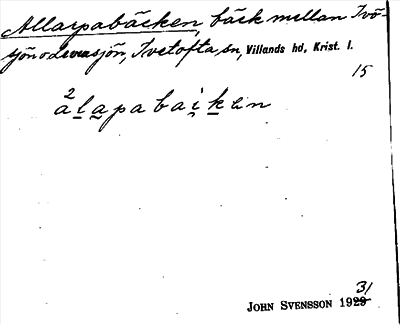 Allarpabäcken, bäck mellan Ivö-
sjön o. Levrasjön, Ivetofta sn, Villands hd, Krist. l.
15
2
alapabaiken
31
JOHN SVENSSON 1929